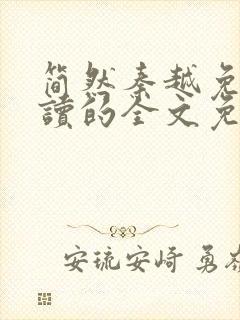 简然秦越免
讀的全文免
安琉安崎 勇